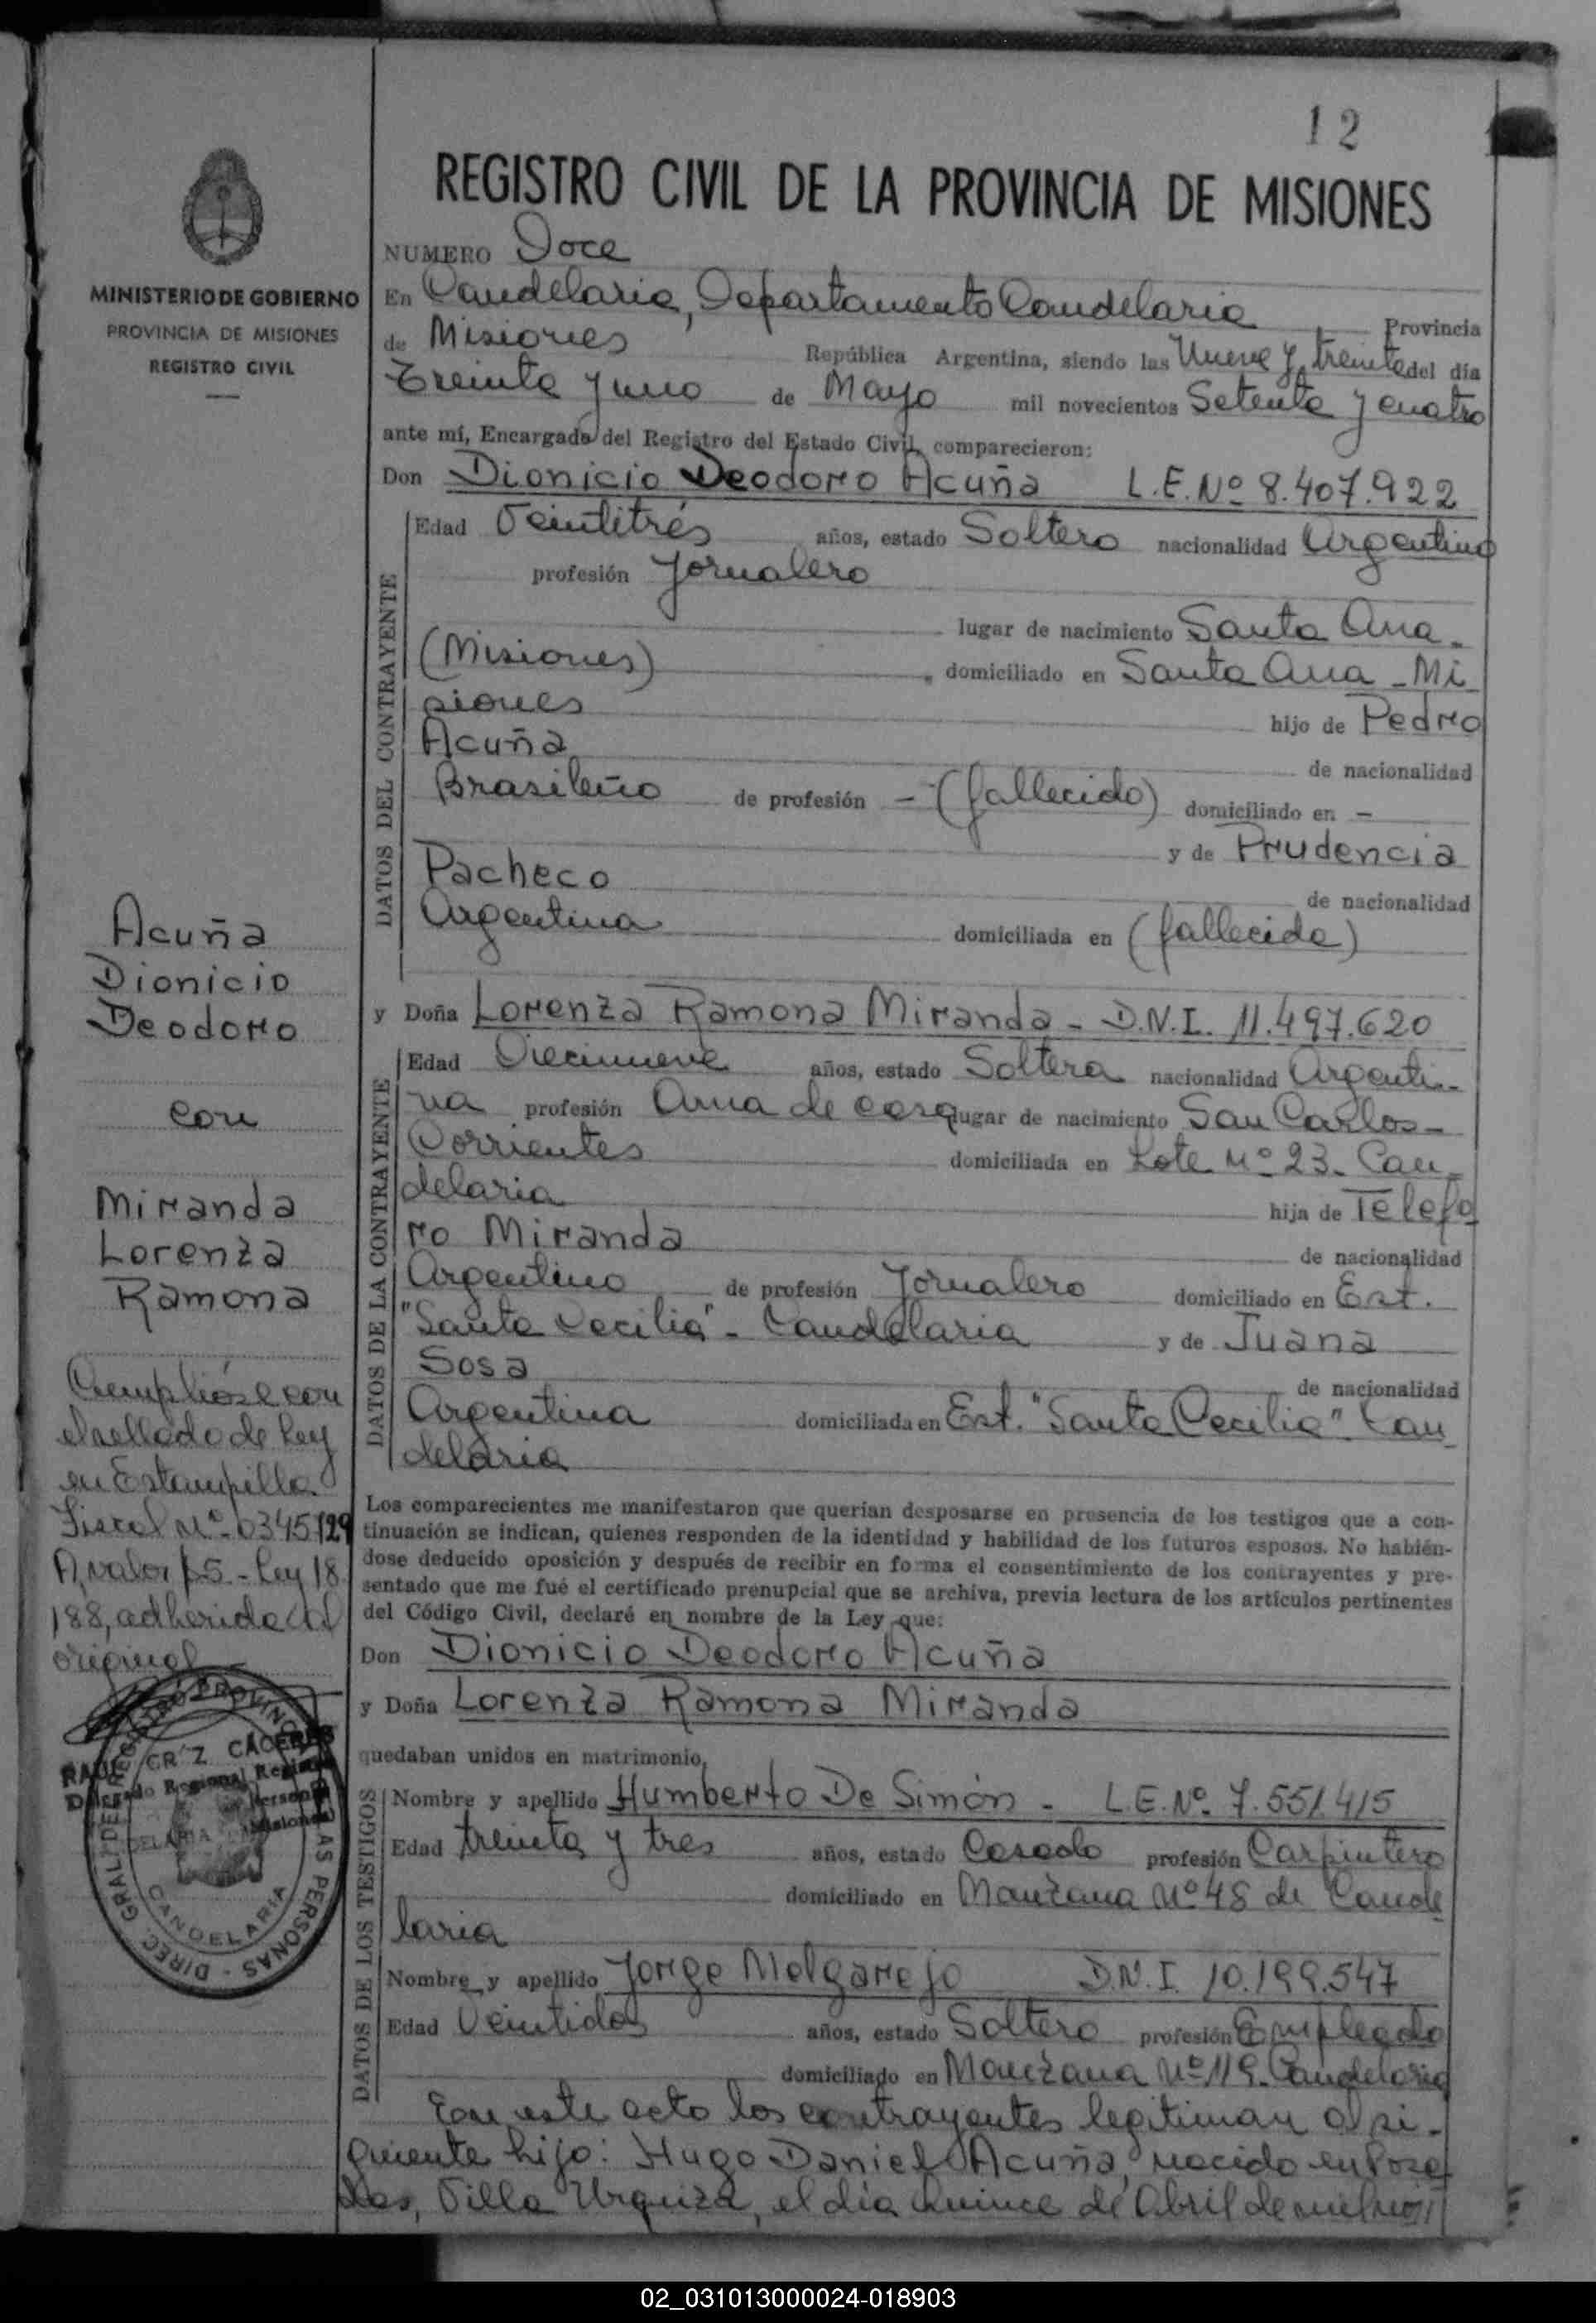 12
REGISTRO CIVIL DE LA PROVINCIA DE MISIONES
MINISTERIO DE GOBIERNO
PROVINCIA DE MISIONES
REGISTRO CIVIL
NUMERO Doce
En Candelaria, Departamento Candelaria Provincia
de Misiones República Argentina, siendo las Nueve y treinta del día
Treinta y uno de Mayo mil novecientos Setenta y cuatro
ante mí, Encargado del Registro del Estado Civil, comparecieron:
Don Dionicio Deodoro Acuña L.E. Nº 8.407.922
DATOS DEL CONTRAYENTE
Edad Veintitrés años, estado Soltero nacionalidad Argentino
profesión Jornalero
lugar de nacimiento Santa Ana -
(Misiones) domiciliado en Santa Ana - Mi
siones hijo de Pedro
Acuña de nacionalidad
Brasileño de profesión - (fallecido) domiciliado en -
y de Prudencia
Pacheco de nacionalidad
Argentina domiciliada en (fallecida)
y Doña Lorenza Ramona Miranda - D.N.I. 11.497.620
DATOS DE LA CONTRAYENTE
Edad Diecinueve años, estado Soltera nacionalidad Argenti-
na profesión Ama de casa lugar de nacimiento San Carlos -
Corrientes domiciliada en Lote Nº 23 - Can
delaria hija de Telefo
ro Miranda de nacionalidad
Argentino de profesión Jornalero domiciliado en Est.
"Santa Cecilia" - Candelaria y de Juana
Sosa de nacionalidad
Argentina domiciliada en Est. "Santa Cecilia" - Can
delaria
Los comparecientes me manifestaron que querían desposarse en presencia de los testigos que a con-
tinuación se indican, quienes responden de la identidad y habilidad de los futuros esposos. No habién-
dose deducido oposición y después de recibir en forma el consentimiento de los contrayentes y pre-
sentado que me fué el certificado prenupcial que se archiva, previa lectura de los artículos pertinentes
del Código Civil, declaré en nombre de la Ley que:
Don Dionicio Deodoro Acuña
y Doña Lorenza Ramona Miranda
quedaban unidos en matrimonio,
DATOS DE LOS TESTIGOS
Nombre y apellido Humberto De Simón - L.E. Nº 7.551.415
Edad treinta y tres años, estado Casado profesión Carpintero
domiciliado en Manzana Nº 48 de Cande
laria
Nombre y apellido Jorge Melgarejo D.N.I. 10.199.547
Edad Veintidos años, estado Soltero profesión Empleado
domiciliado en Manzana Nº 119 - Candelaria
Con este acto los contrayentes legitiman al si-
guiente hijo: Hugo Daniel Acuña, nacido en Posa
das, Villa Urquiza, el día quince de Abril de mil
Acuña
Dionicio
Deodoro
con
Miranda
Lorenza
Ramona
Cumplióse con
el sellado de Ley
en Estampilla
Fiscal Nº 0345129
A, valor $5 - Ley 18.
188, adherida al
original
RAUL CRUZ CACERES
Delegado Regional
CANDELARIA
DIREC. GRAL. DEL REGISTRO PROVINC. DE LAS PERSONAS
02_031013000024-018903